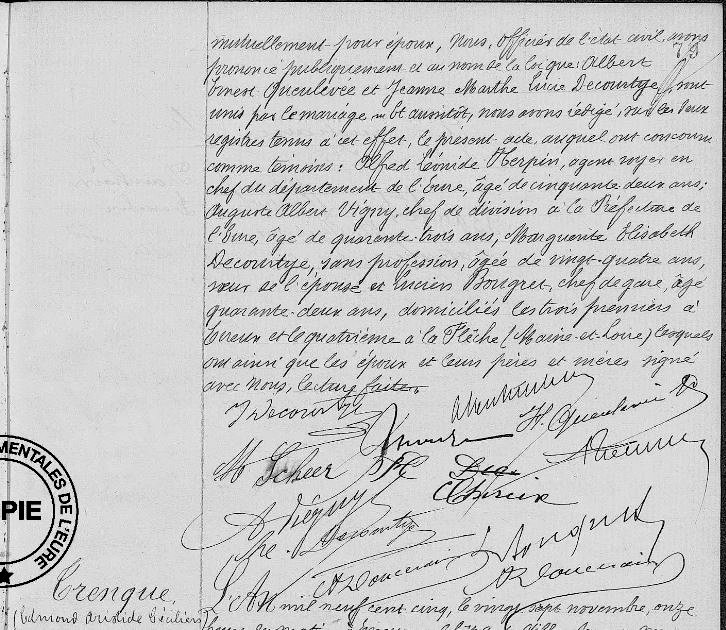 mutuellement pour époux, Nous, officier de l'état civil, avons
prononcé publiquement et au nom de la loi que: Albert
Ernest Queulevée et Jeanne Marthe Lucie Decourtye, sont
unis par le mariage. Et aussitôt, nous avons rédigé, sur les deux
registres tenus à cet effet, le présent acte, auquel ont concouru
comme témoins: Alfred Léonide Herpin, agent voyer en
chef du département de l'Eure, âgé de cinquante deux ans;
Auguste Albert Vigny, chef de division à la Préfecture de
l'Eure, âgé de quarante-trois ans, Marguerite Elisabeth
Decourtye, sans profession, âgée de vingt-quatre ans,
sœur de l'épouse et Lucien Bougret, chef de gare, âgé
quarante-deux ans, domiciliés les trois premiers à
Evreux et le quatrième à la Flèche (Maine-et-Loire) lesquels
ont ainsi que les époux et leurs pères et mères signé
avec Nous, lecture faite.
J Decourtye
H. Queulevée
M Scheer
A Viégny
Bougret
MENTALES DE L'EURE
PIE
Trenque
(Edmond Aristide Cécilien)
L'An mil neuf cent cinq, le vingt sept novembre, onze